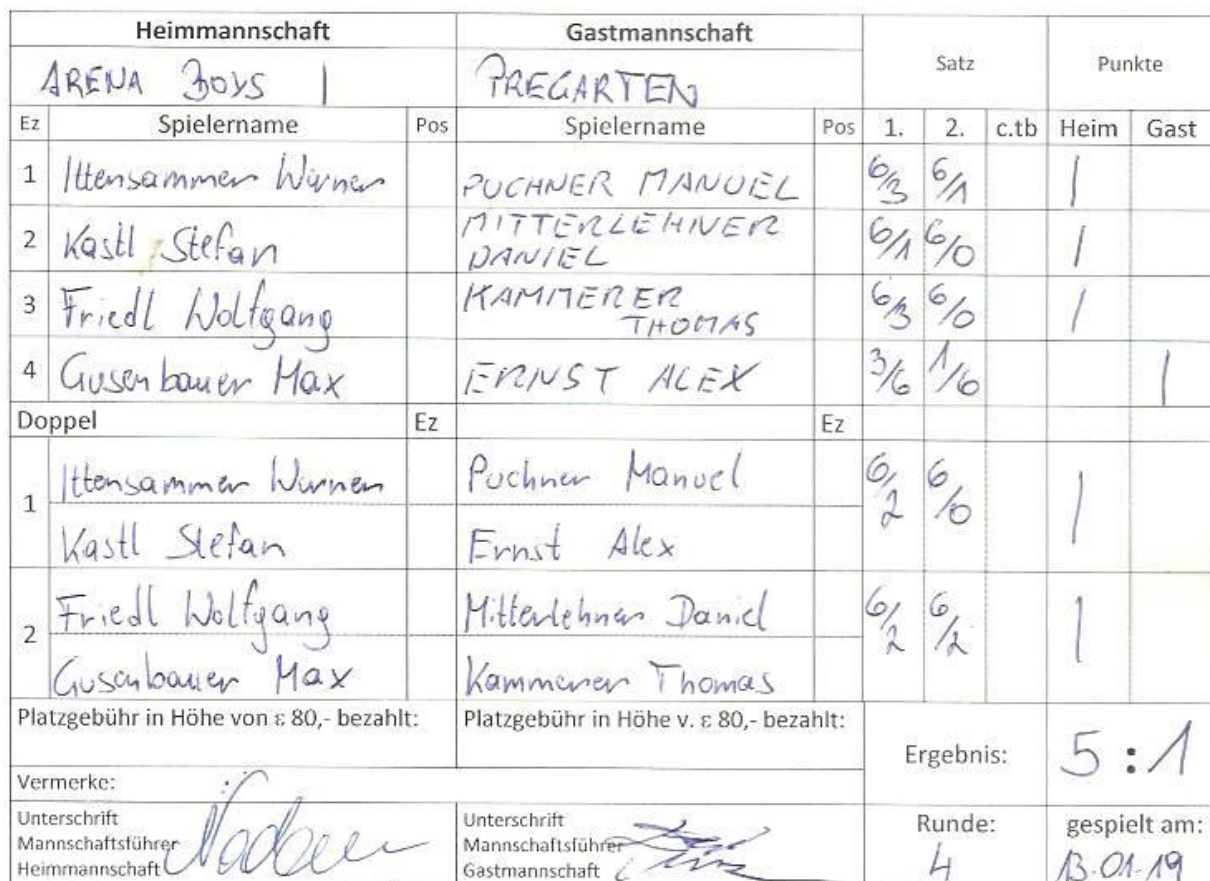 Heimmannschaft Gastmannschaft Satz Punkte
ARENA BOYS 1 PREGARTEN
Ez Spielername Pos Spielername Pos 1. 2. c.tb Heim Gast
1 Ittensammer Werner PUCHNER MANUEL 6/3 6/1 1
2 Kastl Stefan MITTERLEHNER DANIEL 6/1 6/0 1
3 Friedl Wolfgang KAMMERER THOMAS 6/3 6/0 1
4 Gusenbauer Max ERNST ALEX 3/6 1/6 1
Doppel Ez Ez
1 Ittensammer Werner Puchner Manuel 6/2 6/0 1
Kastl Stefan Ernst Alex
2 Friedl Wolfgang Mitterlehner Daniel 6/2 6/2 1
Gusenbauer Max Kammerer Thomas
Platzgebühr in Höhe von ε 80,- bezahlt: Platzgebühr in Höhe v. ε 80,- bezahlt:
Ergebnis: 5:1
Vermerke:
Unterschrift Mannschaftsführer Heimmannschaft Unterschrift Mannschaftsführer Gastmannschaft
Runde: 4 gespielt am: 13.01.19